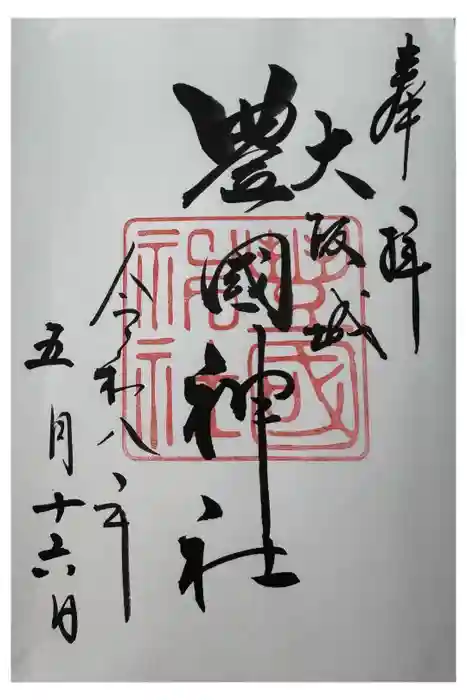 奉拝
大阪城
豊國神社
令和八年
五月十六日